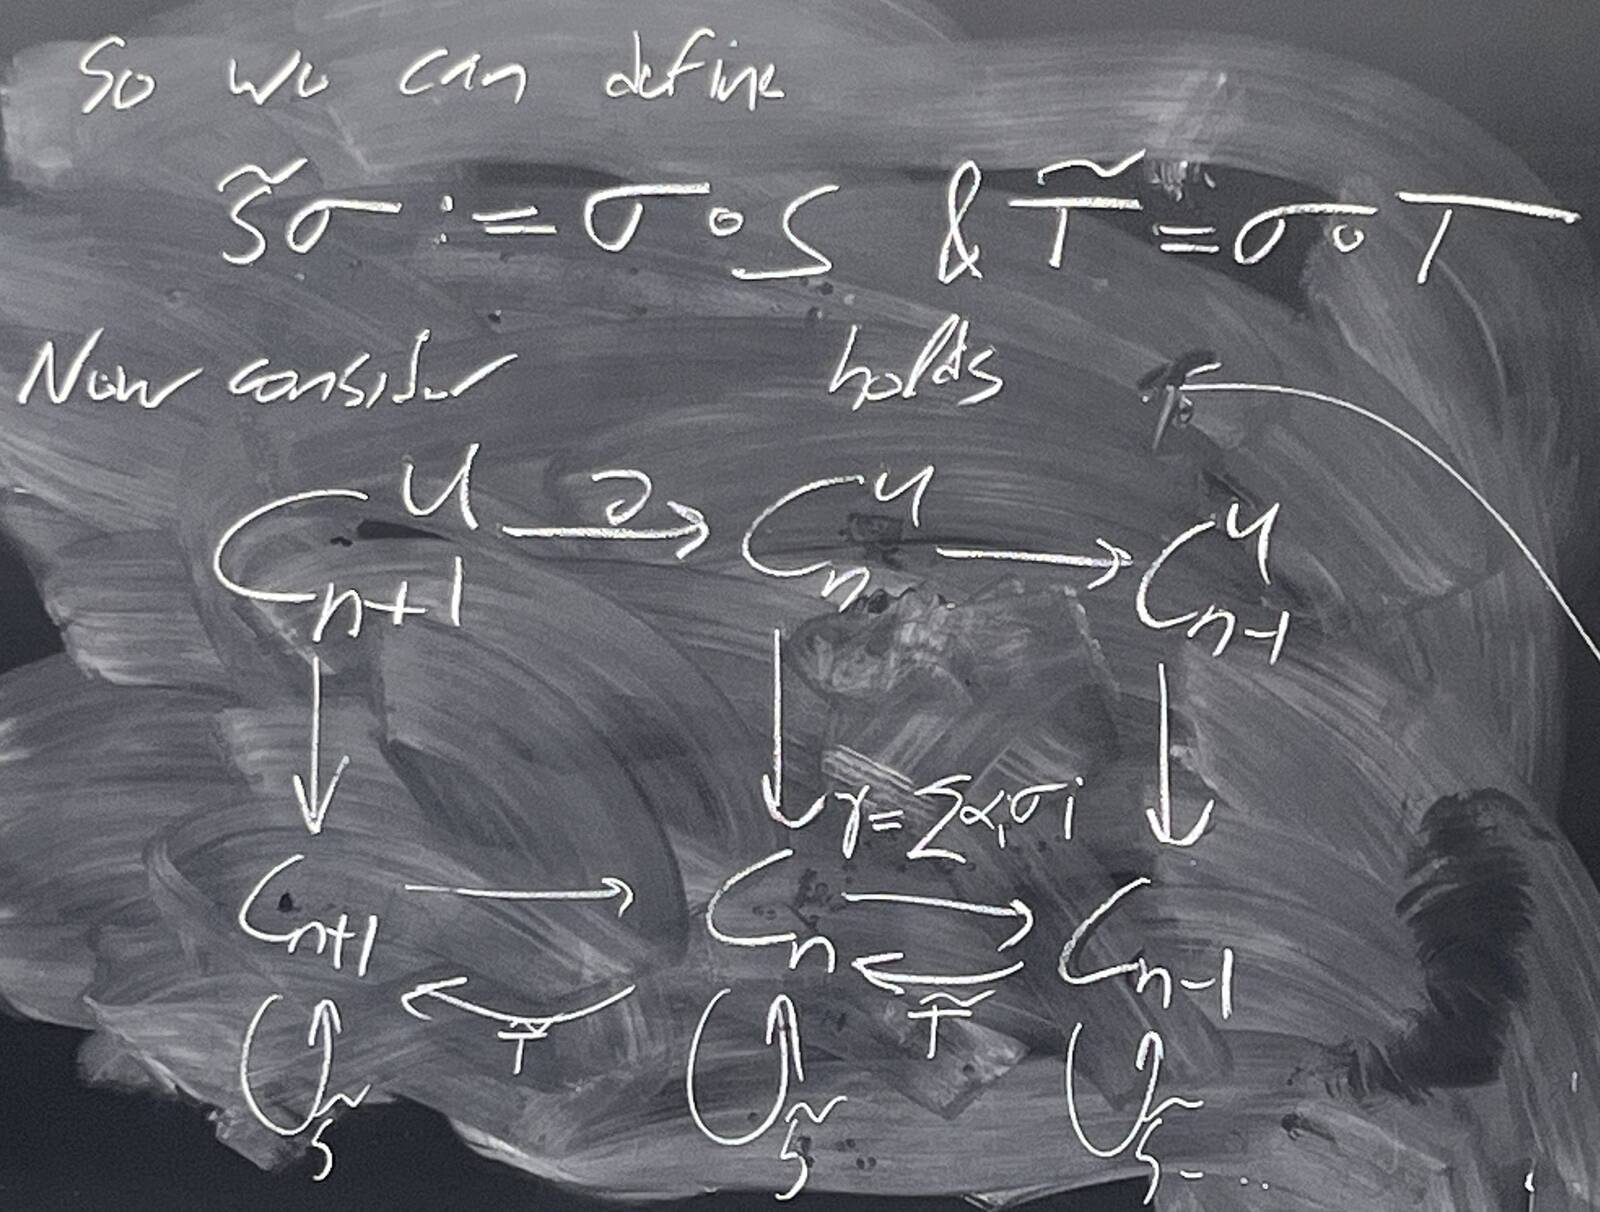 So we can define
S̃σ := σ∘S & T̃ = σ∘T
Now consider holds
C^U_{n+1} →∂ C^U_n → C^U_{n-1}
↓ ↓ γ = Σαᵢσᵢ ↓
C_{n+1} → C_n → C_{n-1}
← T̃ ← T̃
S̃ S̃ S̃ ...